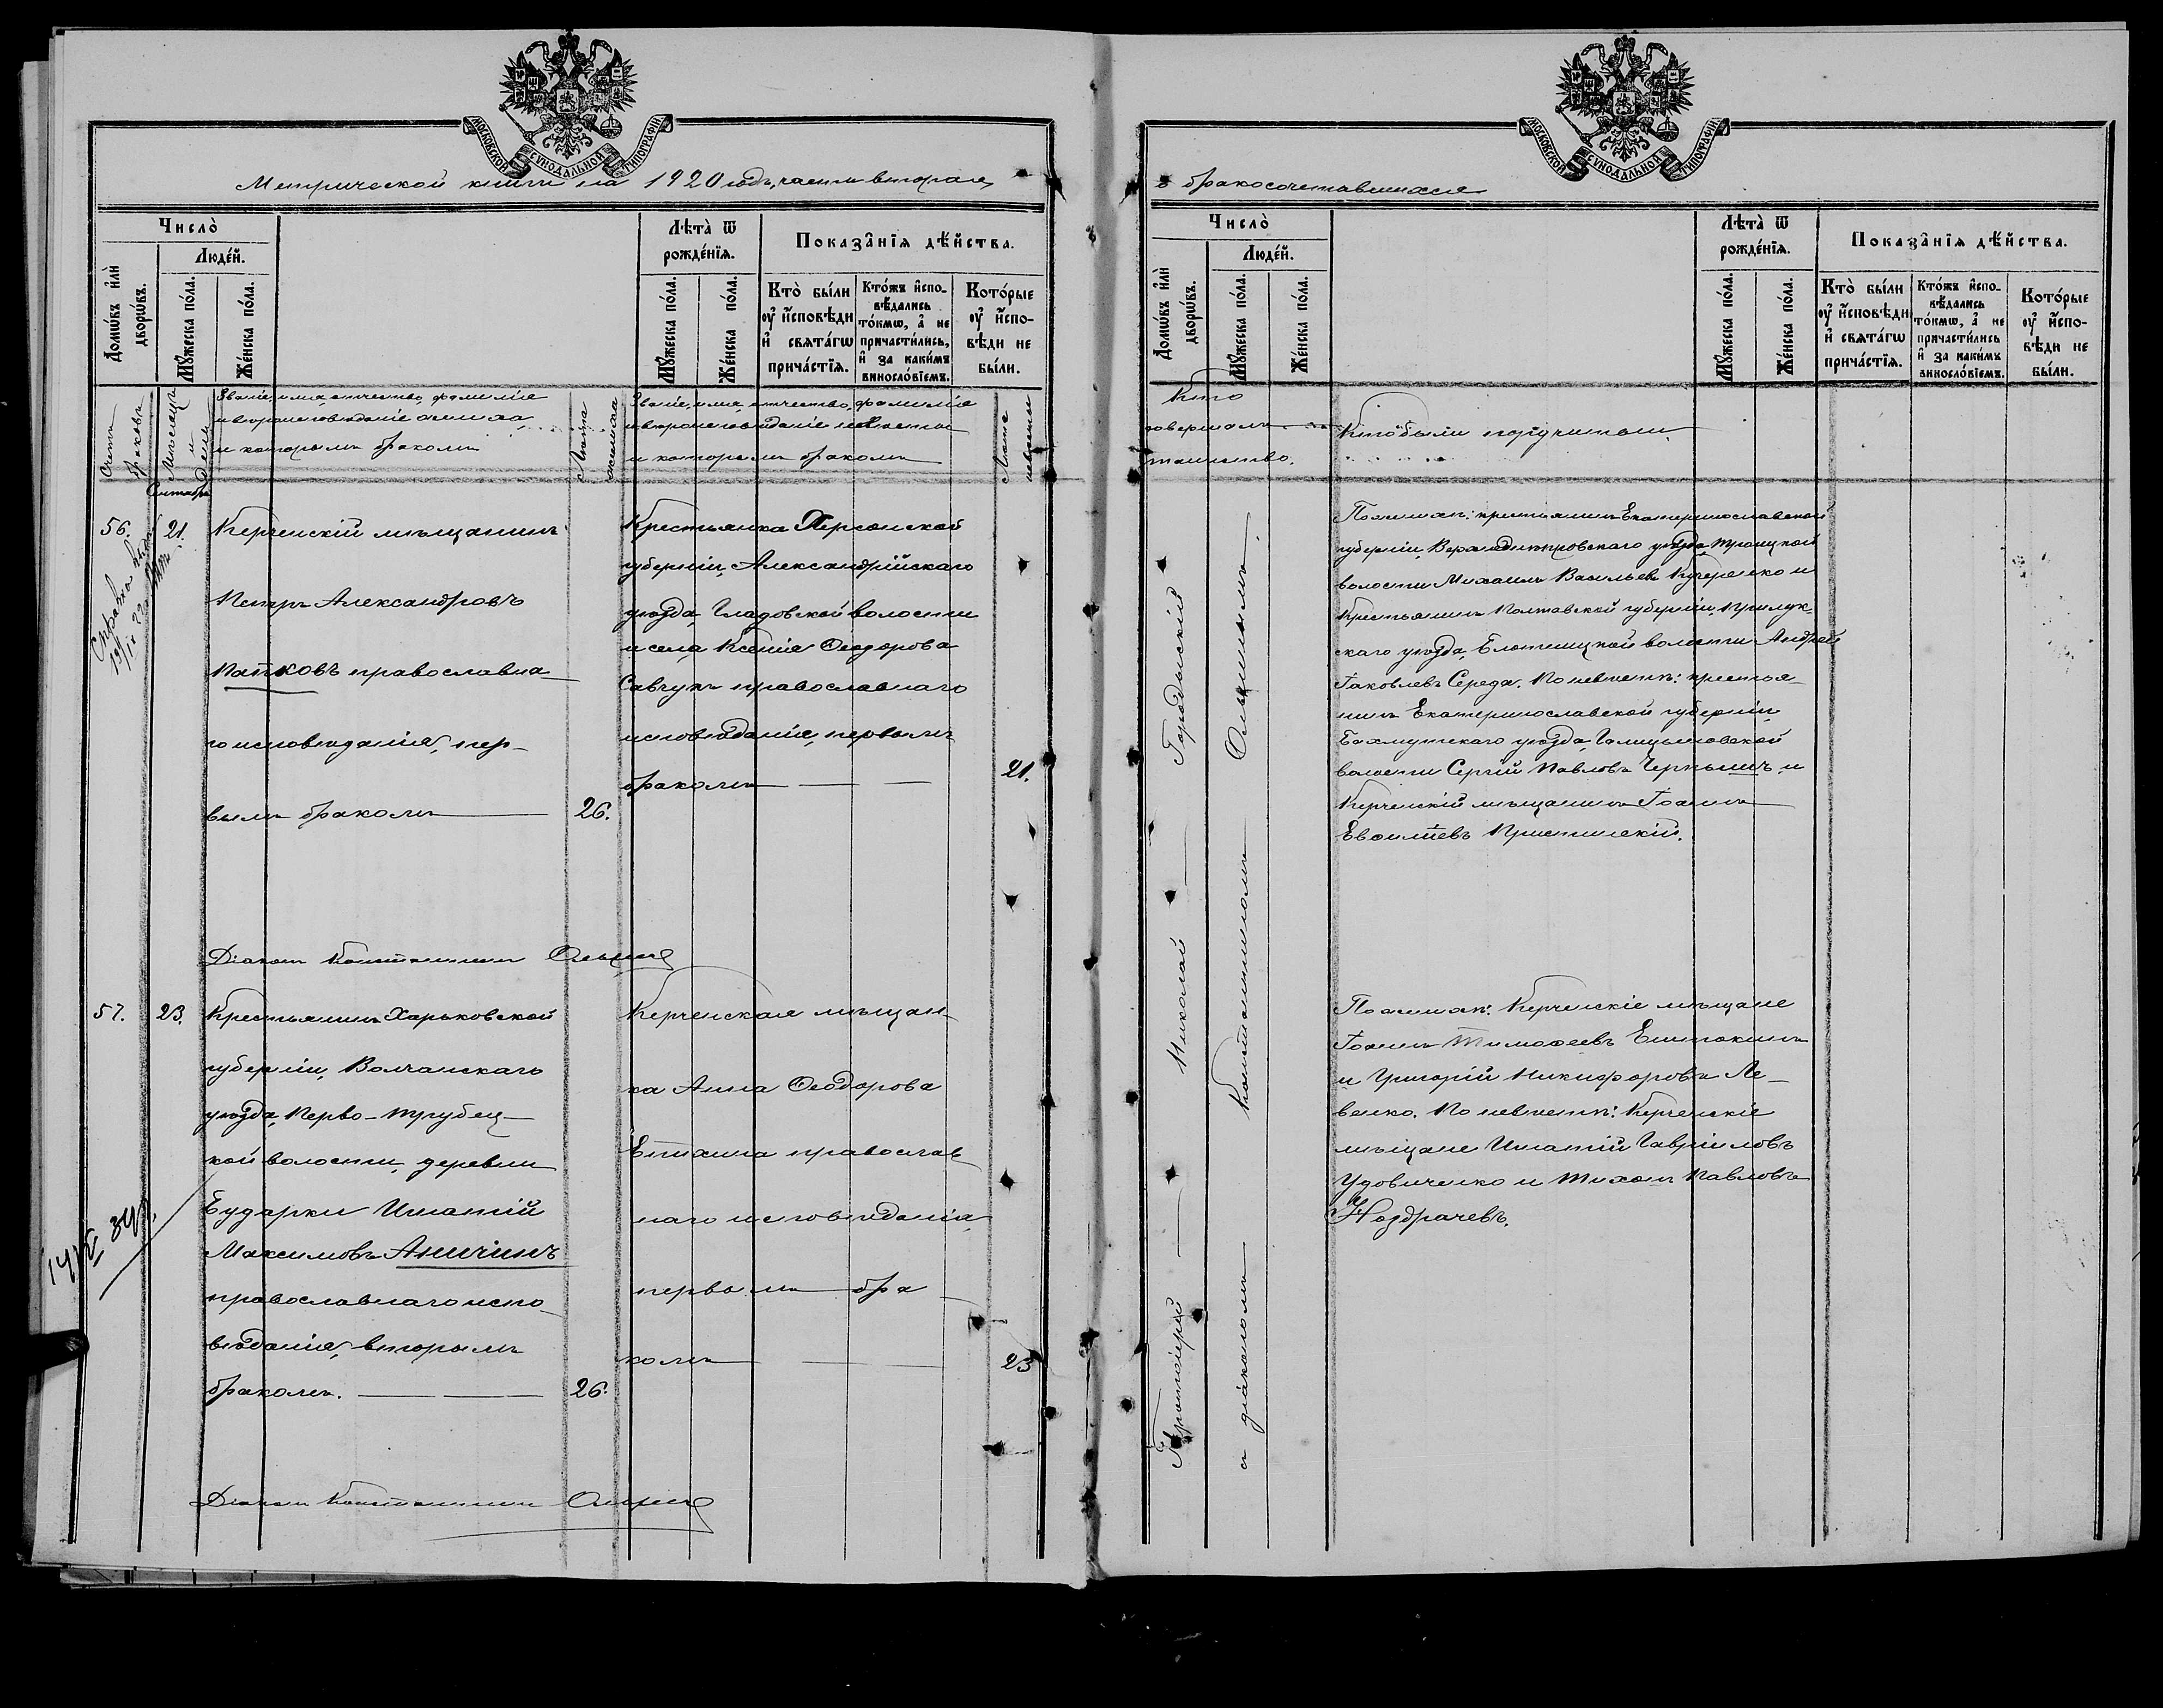 МОСКОВСКОЙ СѴНОДАЛЬНОЙ ТИПОГРАФІИ
Метрической книги на 1920 годъ, часть вторая,
Число̀
Людéй.
Домѡ́въ и҆лѝ дворѡ́въ.
Мꙋ́жеска по́ла.
Же́нска по́ла.
Лѣта̀ ѿ рожде́нїѧ.
Мꙋ́жеска по́ла.
Же́нска по́ла.
Показа̑нїѧ дѣ́йства.
Кто̀ бы́ли ᲂу҆ и҆сповѣди и҆ свѧта́гѡ прича́стїѧ.
Кто́жъ и҆спо-вѣдались то́кмѡ, а҆ не причасти́лись, и҆ за каки́мъ винослов́їемъ.
Кото́рые ᲂу҆ и҆спо-вѣди не бы́ли.
Счетъ браковъ
Мѣсяцъ и день
Званіе, имя, отчество, фамилія
и вѣроисповѣданіе жениха
и которымъ бракомъ
Лѣта жениха
Званіе, имя, отчество, фамилія
и вѣроисповѣданіе невѣсты
и которымъ бракомъ
Лѣта невѣсты
Сентябрь
56.
21.
Керченскій мѣщанинъ
Петръ Александровъ
Папковъ православна
го исповѣданія, пер-
вымъ бракомъ
26.
Крестьянка Херсонской
губерніи, Александрійскаго
уѣзда, Гладовской волости
и села, Ксенія Ѳеодорова
Савчукъ православнаго
исповѣданія, первымъ
бракомъ
21.
Діаконъ Константинъ
57.
23.
Крестьянинъ Харьковской
губерніи, Волчанскаго
уѣзда, Перво-Трубец-
кой волости, деревни
Бударки Игнатій
Максимовъ Аничинъ
православнаго испо-
вѣданія, вторымъ
бракомъ.
26.
Керченская мѣщан-
ка Анна Ѳеодорова
православ
наго исповѣданія,
первымъ бра
комъ
23
Діаконъ Константинъ
МОСКОВСКОЙ СѴНОДАЛЬНОЙ ТИПОГРАФІИ
о бракосочетавшихся
Число̀
Людéй.
Домѡ́въ и҆лѝ дворѡ́въ.
Мꙋ́жеска по́ла.
Же́нска по́ла.
Лѣта̀ ѿ рожде́нїѧ.
Мꙋ́жеска по́ла.
Же́нска по́ла.
Показа̑нїѧ дѣ́йства.
Кто̀ бы́ли ᲂу҆ и҆сповѣди и҆ свѧта́гѡ прича́стїѧ.
Кто́жъ и҆спо-вѣдались то́кмѡ, а҆ не причасти́лись и҆ за каки́мъ винослов́їемъ.
Кото́рые ᲂу҆ и҆спо-вѣди не бы́ли.
Кто
совершалъ
таинство.
Кто были поручители.
Протоіерей Николай
съ діакономъ Константиномъ
По женихѣ: крестьянинъ Екатеринославской
губерніи, Верхнеднѣпровскаго уѣзда, Троицкой
волости Михаилъ Васильевъ Кучеренко и
Крестьянинъ Полтавской губерніи, Прилук-
скаго уѣзда, волости Андрей
Іаковлевъ Середа. По невѣстѣ: крестья-
нинъ Екатеринославской губерніи,
Бахмутскаго уѣзда, Голицыновской
волости Сергій Павловъ Чернышъ и
Керченскій мѣщанинъ Іоаннъ
По женихѣ: Керченскіе мѣщане
Іоаннъ Тимоѳеевъ
и Григорій Никифоровъ Ле-
венко. По невѣстѣ: Керченскіе
мѣщане Игнатій Гавріиловъ
Удовиченко и Тихонъ Павловъ
Ноздрачевъ.